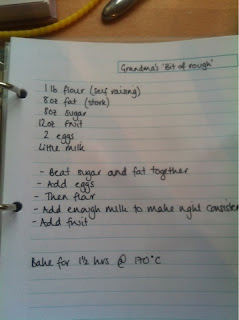 Grandma's 'Bit of rough'
1 lb flour (self raising)
8oz fat (stork)
8oz sugar
12oz fruit
2 eggs
Little milk
- Beat sugar and fat together
- Add eggs
- Then flour
- Add enough milk to make right consisten
- Add fruit
Bake for 1½ hrs @ 170°C